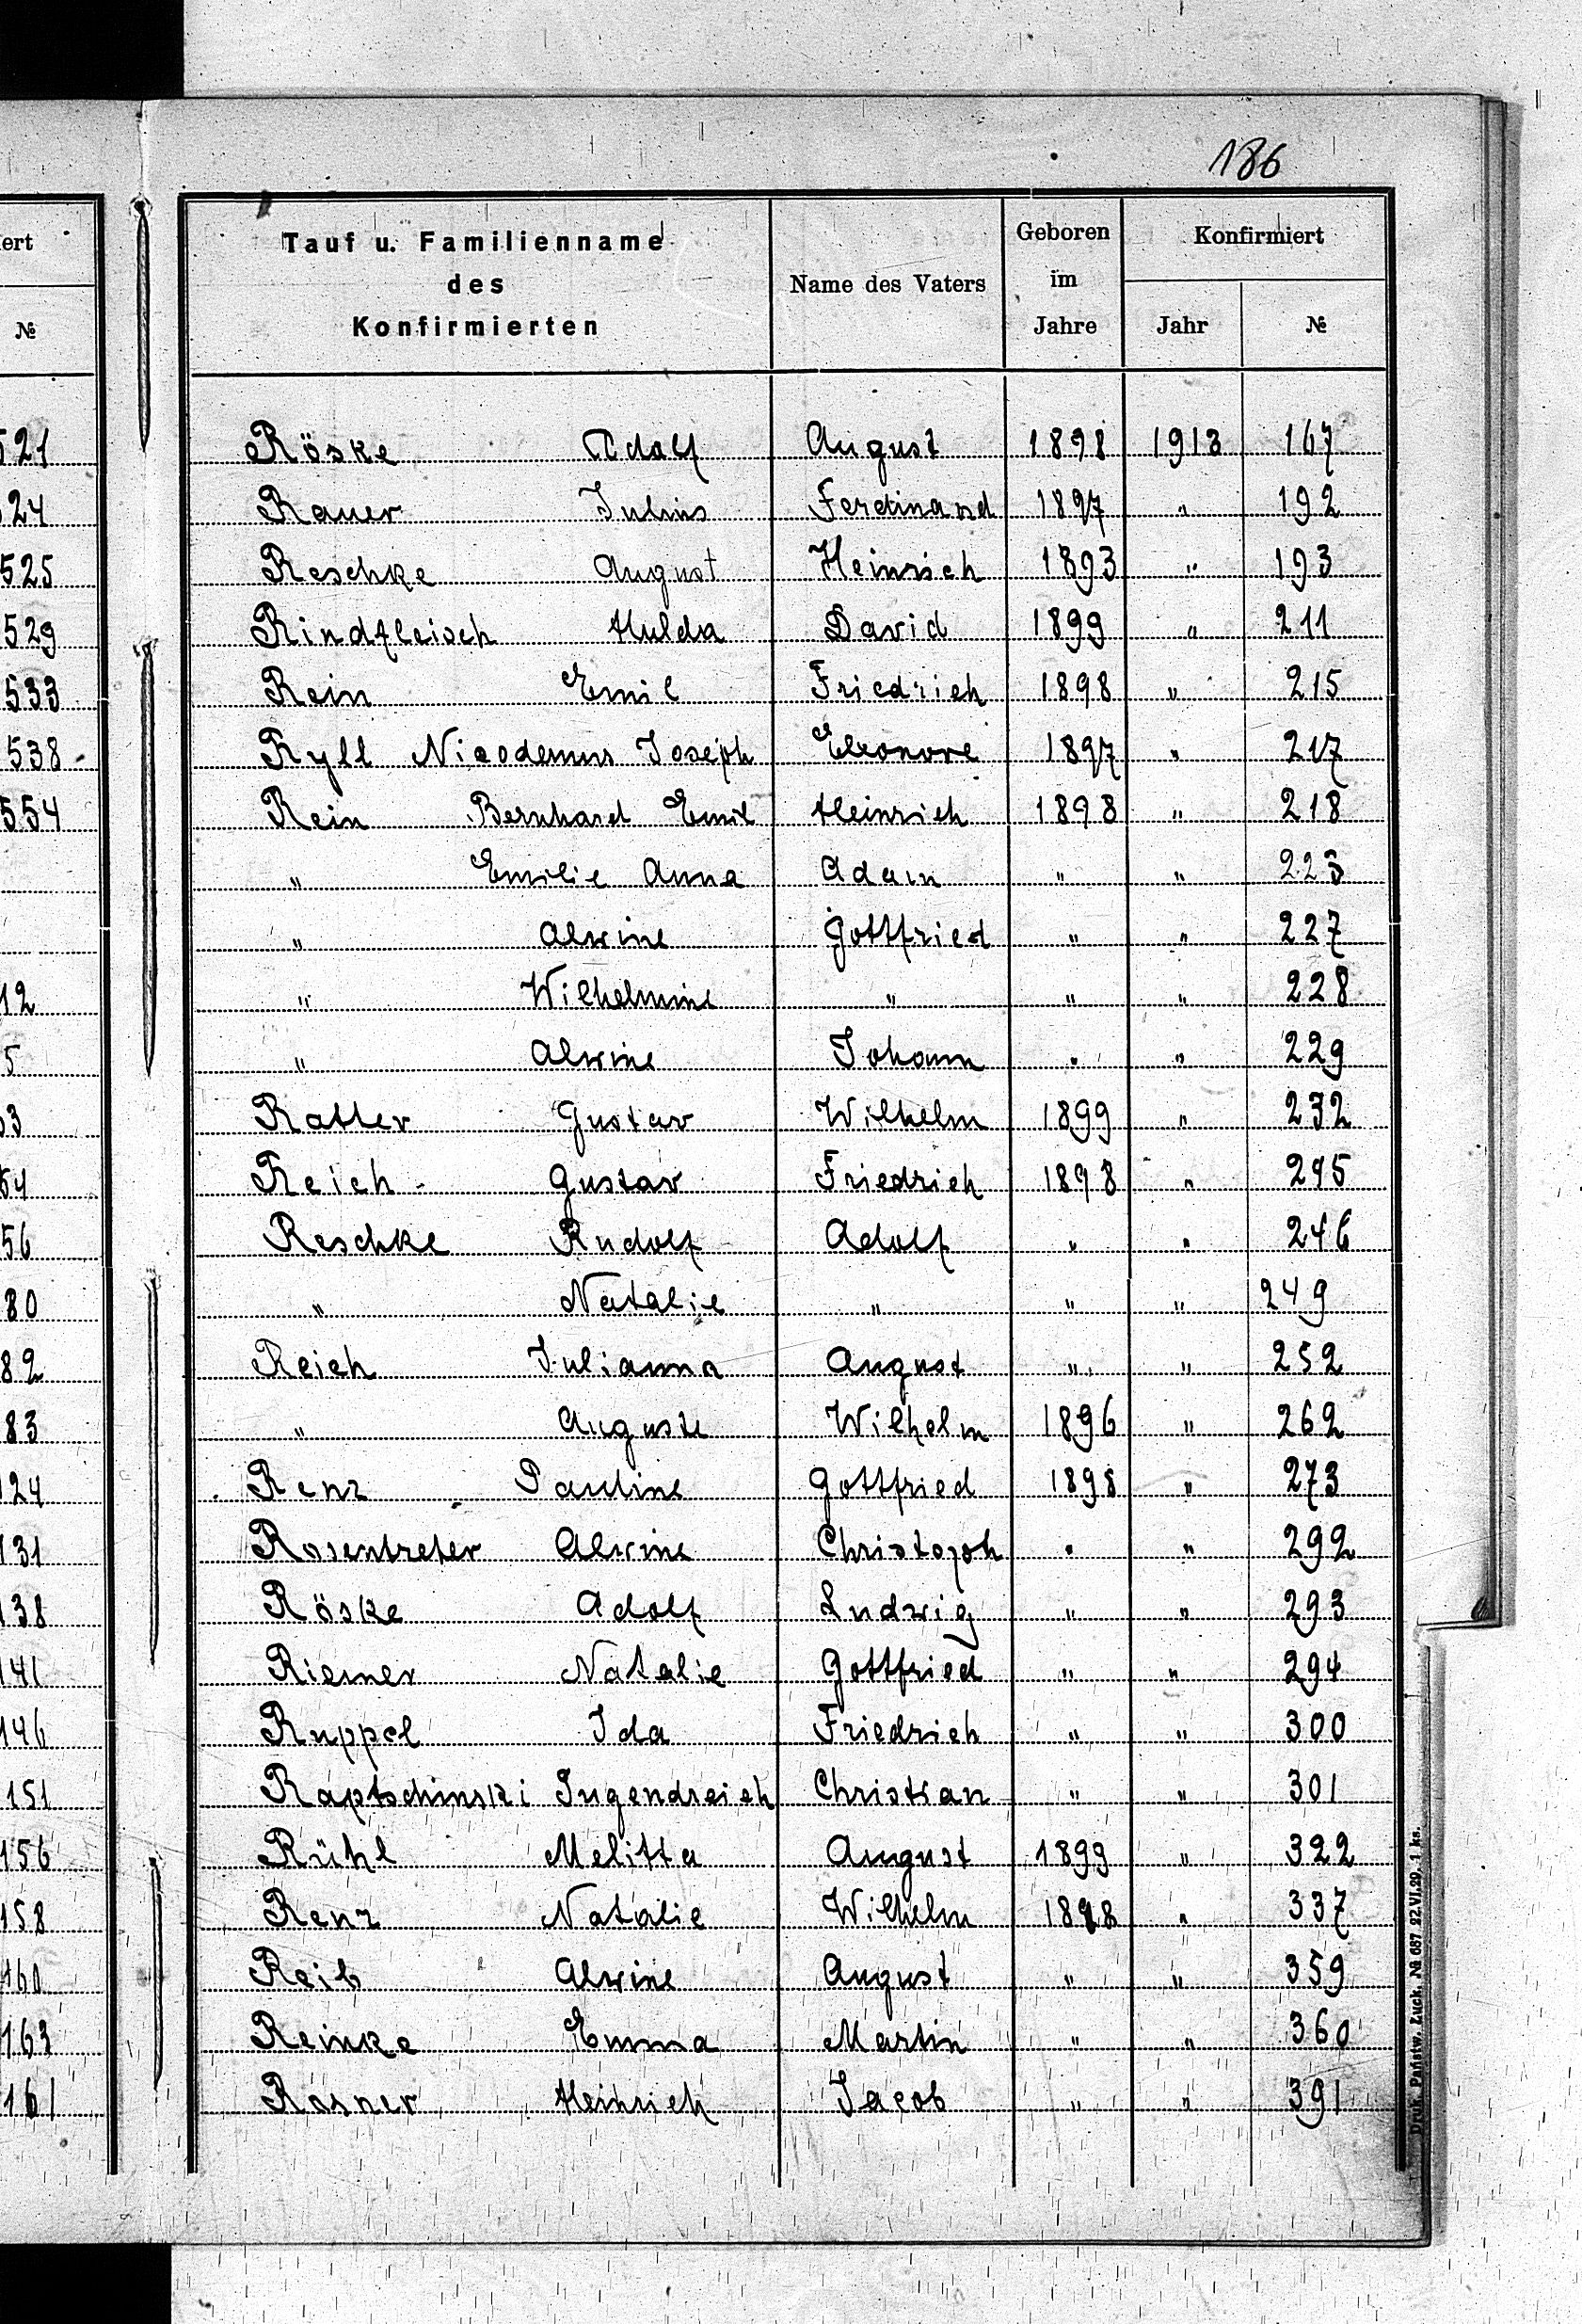 186
ert
№
521
524
525
529
533
538
554
12
5
53
54
56
80
82
83
124
131
138
141
146
151
156
158
160
163
161
Tauf u. Familienname
des
Konfirmierten
Name des Vaters
Geboren
im
Jahre
Konfirmiert
Jahr
№
Röske Adolf August 1898 1913 167
Rauer Julius Ferdinand 1897 " 192
Reschke August Heinrich 1893 " 193
Rindfleisch Hulda David 1899 " 211
Rein Emil Friedrich 1898 " 215
Ryll Nicodemus Joseph Eleonore 1897 " 217
Rein Bernhard Emil Heinrich 1898 " 218
" Emilie Anna Adam " " 223
" Alwine Gottfried " " 227
" Wilhelmine " " " 228
" Alwine Johann " " 229
Ratter Gustav Wilhelm 1899 " 232
Reich Gustav Friedrich 1898 " 245
Reschke Rudolf Adolf " " 246
" Natalie " " " 249
Reich Julianna August " " 252
" Auguste Wilhelm 1896 " 262
Renz Pauline Gottfried 1898 " 273
Rosentreter Alwine Christoph " " 292
Röske Adolf Ludwig " " 293
Riemer Natalie Gottfried " " 294
Ruppel Ida Friedrich " " 300
Raptschinski Jugendreich Christian " " 301
Rühl Melitta August 1899 " 322
Renz Natalie Wilhelm 1898 " 337
Reib Alwine August " " 359
Reinke Emma Martin " " 360
Rosner Heinrich Jacob " " 391
Druk. Państw. Łuck. № 687 22.VI.29. 1 ks.